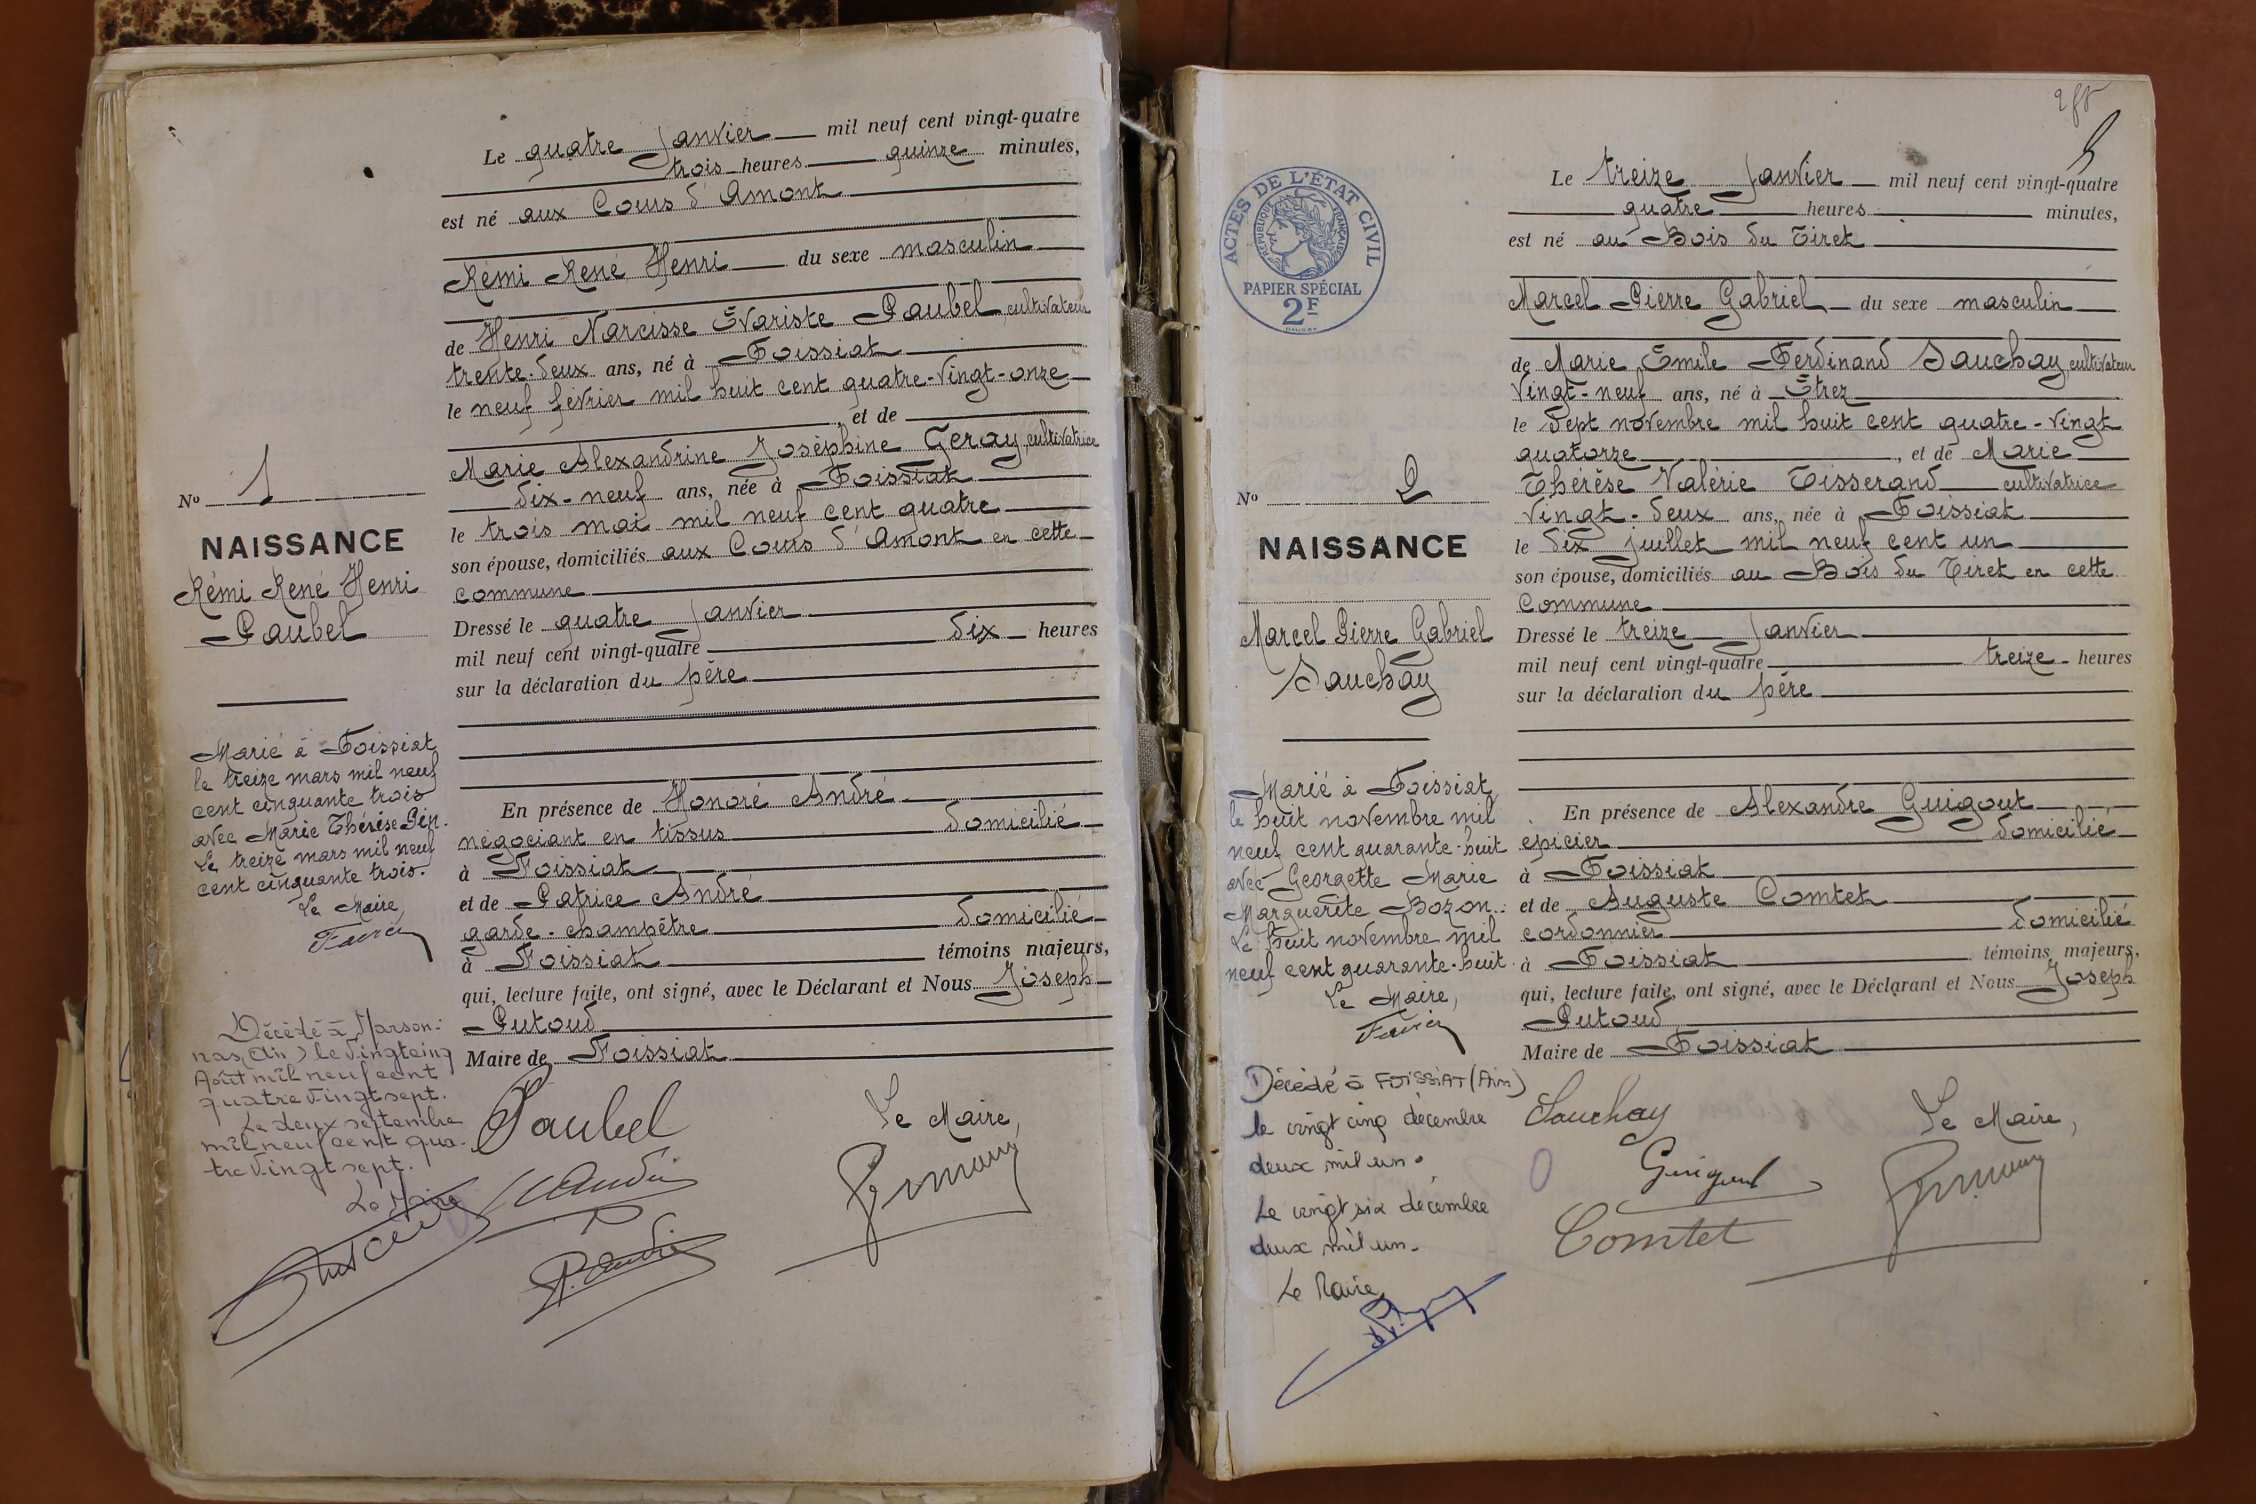 Le quatre Janvier mil neuf cent vingt-quatre
trois heures quinze minutes,
est né aux Cours d'Amont
Rémi René Henri du sexe masculin
de Henri Narcisse Évariste Paubel, cultivateur
trente-deux ans, né à Foissiat
le neuf février mil huit cent quatre-vingt-onze
, et de
Marie Alexandrine Joséphine Geray, cultivatrice
dix-neuf ans, née à Foissiat
le trois mai mil neuf cent quatre
son épouse, domiciliés aux Cours d'Amont en cette
commune
Dressé le quatre Janvier
mil neuf cent vingt-quatre dix heures
sur la déclaration du père
En présence de Honoré André
négociant en tissus domicilié
à Foissiat
et de Patrice André
garde-champêtre domicilié
à Foissiat témoins majeurs,
qui, lecture faite, ont signé, avec le Déclarant et Nous Joseph
Putoud
Maire de Foissiat
Paubel
Le Maire,
No 1
NAISSANCE
Rémi René Henri
Paubel
Marié à Foissiat
le treize mars mil neuf
cent cinquante trois
avec Marie Thérèse Pin.
Le treize mars mil neuf
cent cinquante trois.
Le Maire,
Favier
Décédé à Marson-
nas (Ain) le vingtcinq
Août mil neuf cent
quatre vingt sept.
Le deux septembre
mil neuf cent qua-
tre vingt sept.
Le Maire
5
ACTES DE L'ÉTAT CIVIL
RÉPUBLIQUE FRANÇAISE
PAPIER SPÉCIAL
2F
Le treize Janvier mil neuf cent vingt-quatre
quatre heures minutes,
est né au Bois du Tiret
Marcel Pierre Gabriel du sexe masculin
de Marie Emile Ferdinand Sauchay, cultivateur
vingt-neuf ans, né à Étrez
le sept novembre mil huit cent quatre-vingt
quatorze, et de Marie
Thérèse Valérie Tisserand cultivatrice
vingt-deux ans, née à Foissiat
le dix juillet mil neuf cent un
son épouse, domiciliés au Bois du Tiret en cette
commune
Dressé le treize Janvier
mil neuf cent vingt-quatre treize heures
sur la déclaration du père
En présence de Alexandre Guigout
épicier domicilié
à Foissiat
et de Auguste Comtet
cordonnier domicilié
à Foissiat témoins majeurs,
qui, lecture faite, ont signé, avec le Déclarant et Nous Joseph
Putoud
Maire de Foissiat
Sauchay
Le Maire,
Comtet
No 2
NAISSANCE
Marcel Pierre Gabriel
Sauchay
Marié à Foissiat
le huit novembre mil
neuf cent quarante-huit
avec Georgette Marie
Marguerite Bozon.
Le huit novembre mil
neuf cent quarante-huit.
Le Maire,
Favier
Décédé à FOISSIAT (Ain)
le vingt cinq décembre
deux mil un.
Le vingt six décembre
deux mil un.
Le Maire